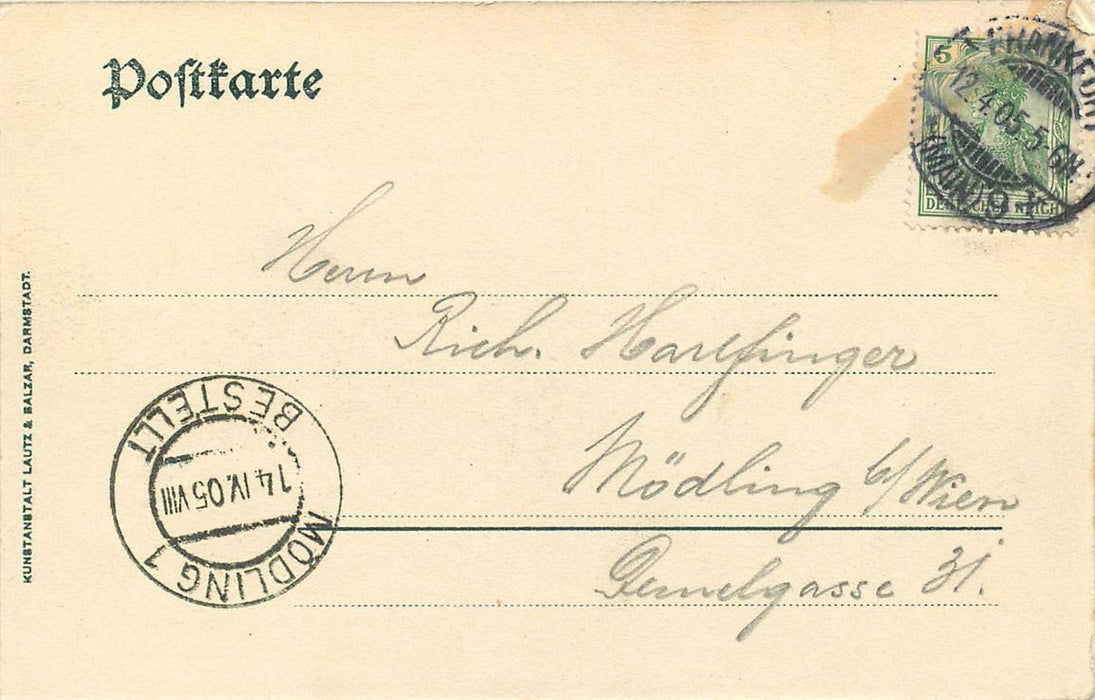 Postkarte
5
DEUTSCHES REICH
FRANKFURT
12.4.05.5-6N.
(MAIN) 9
Herrn
Rich. Harlfinger
Mödling b/Wien
Demelgasse 31.
BESTELLT
14.IV.05 VIII
MÖDLING 1
KUNSTANSTALT LAUTZ & BALZAR, DARMSTADT.